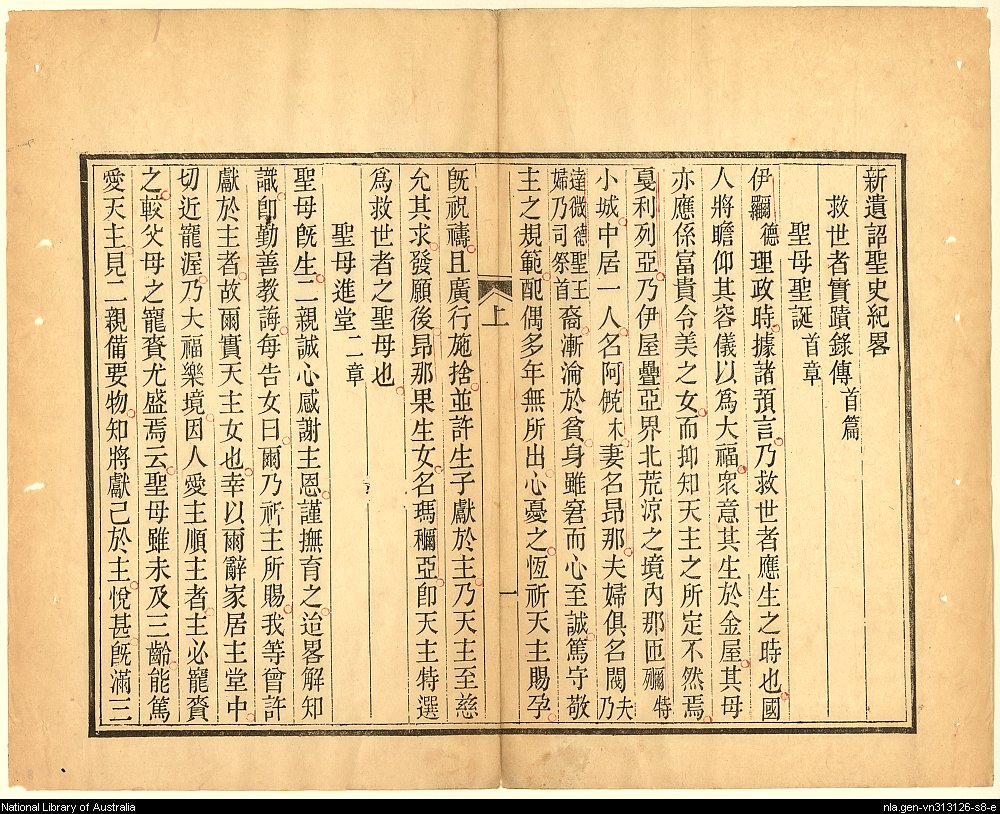 新遺詔聖史紀畧
救世者實蹟錄傳 首篇
聖母聖誕 首章
伊羅德理政時據諸預言乃救世者應生之時也國
人將瞻仰其容儀以爲大福衆意其生於金屋其母
亦應係富貴令美之女而抑知天主之所定不然焉
戛利列亞乃伊屋疊亞界北荒凉之境內那匝特
小城中居一人名阿木妻名昂那夫婦俱名閥夫乃
達微德聖王裔漸淪於貧身雖窘而心至誠篤守敬
婦乃司祭首
主之規範配偶多年無所出心憂之恆祈天主賜孕
旣祝禱且廣行施捨並許生子獻於主乃天主至慈
允其求發願後昂那果生女名瑪亞卽天主特選
爲救世者之聖母也
聖母進堂 二章
聖母旣生二親誠心感謝主恩謹撫育之迨畧解知
識卽勤善教誨每告女曰爾乃祈主所賜我等曾許
獻於主者故爾實天主女也幸以爾辭家居主堂中
切近寵渥乃大福樂境因人愛主順主者主必寵賚
之較父母之寵賚尤盛焉云聖母雖未及三齡能篤
愛天主見二親備要物知將獻己於主悅甚旣滿三
上
一
National Library of Australia
nla.gen-vn313126-s8-e